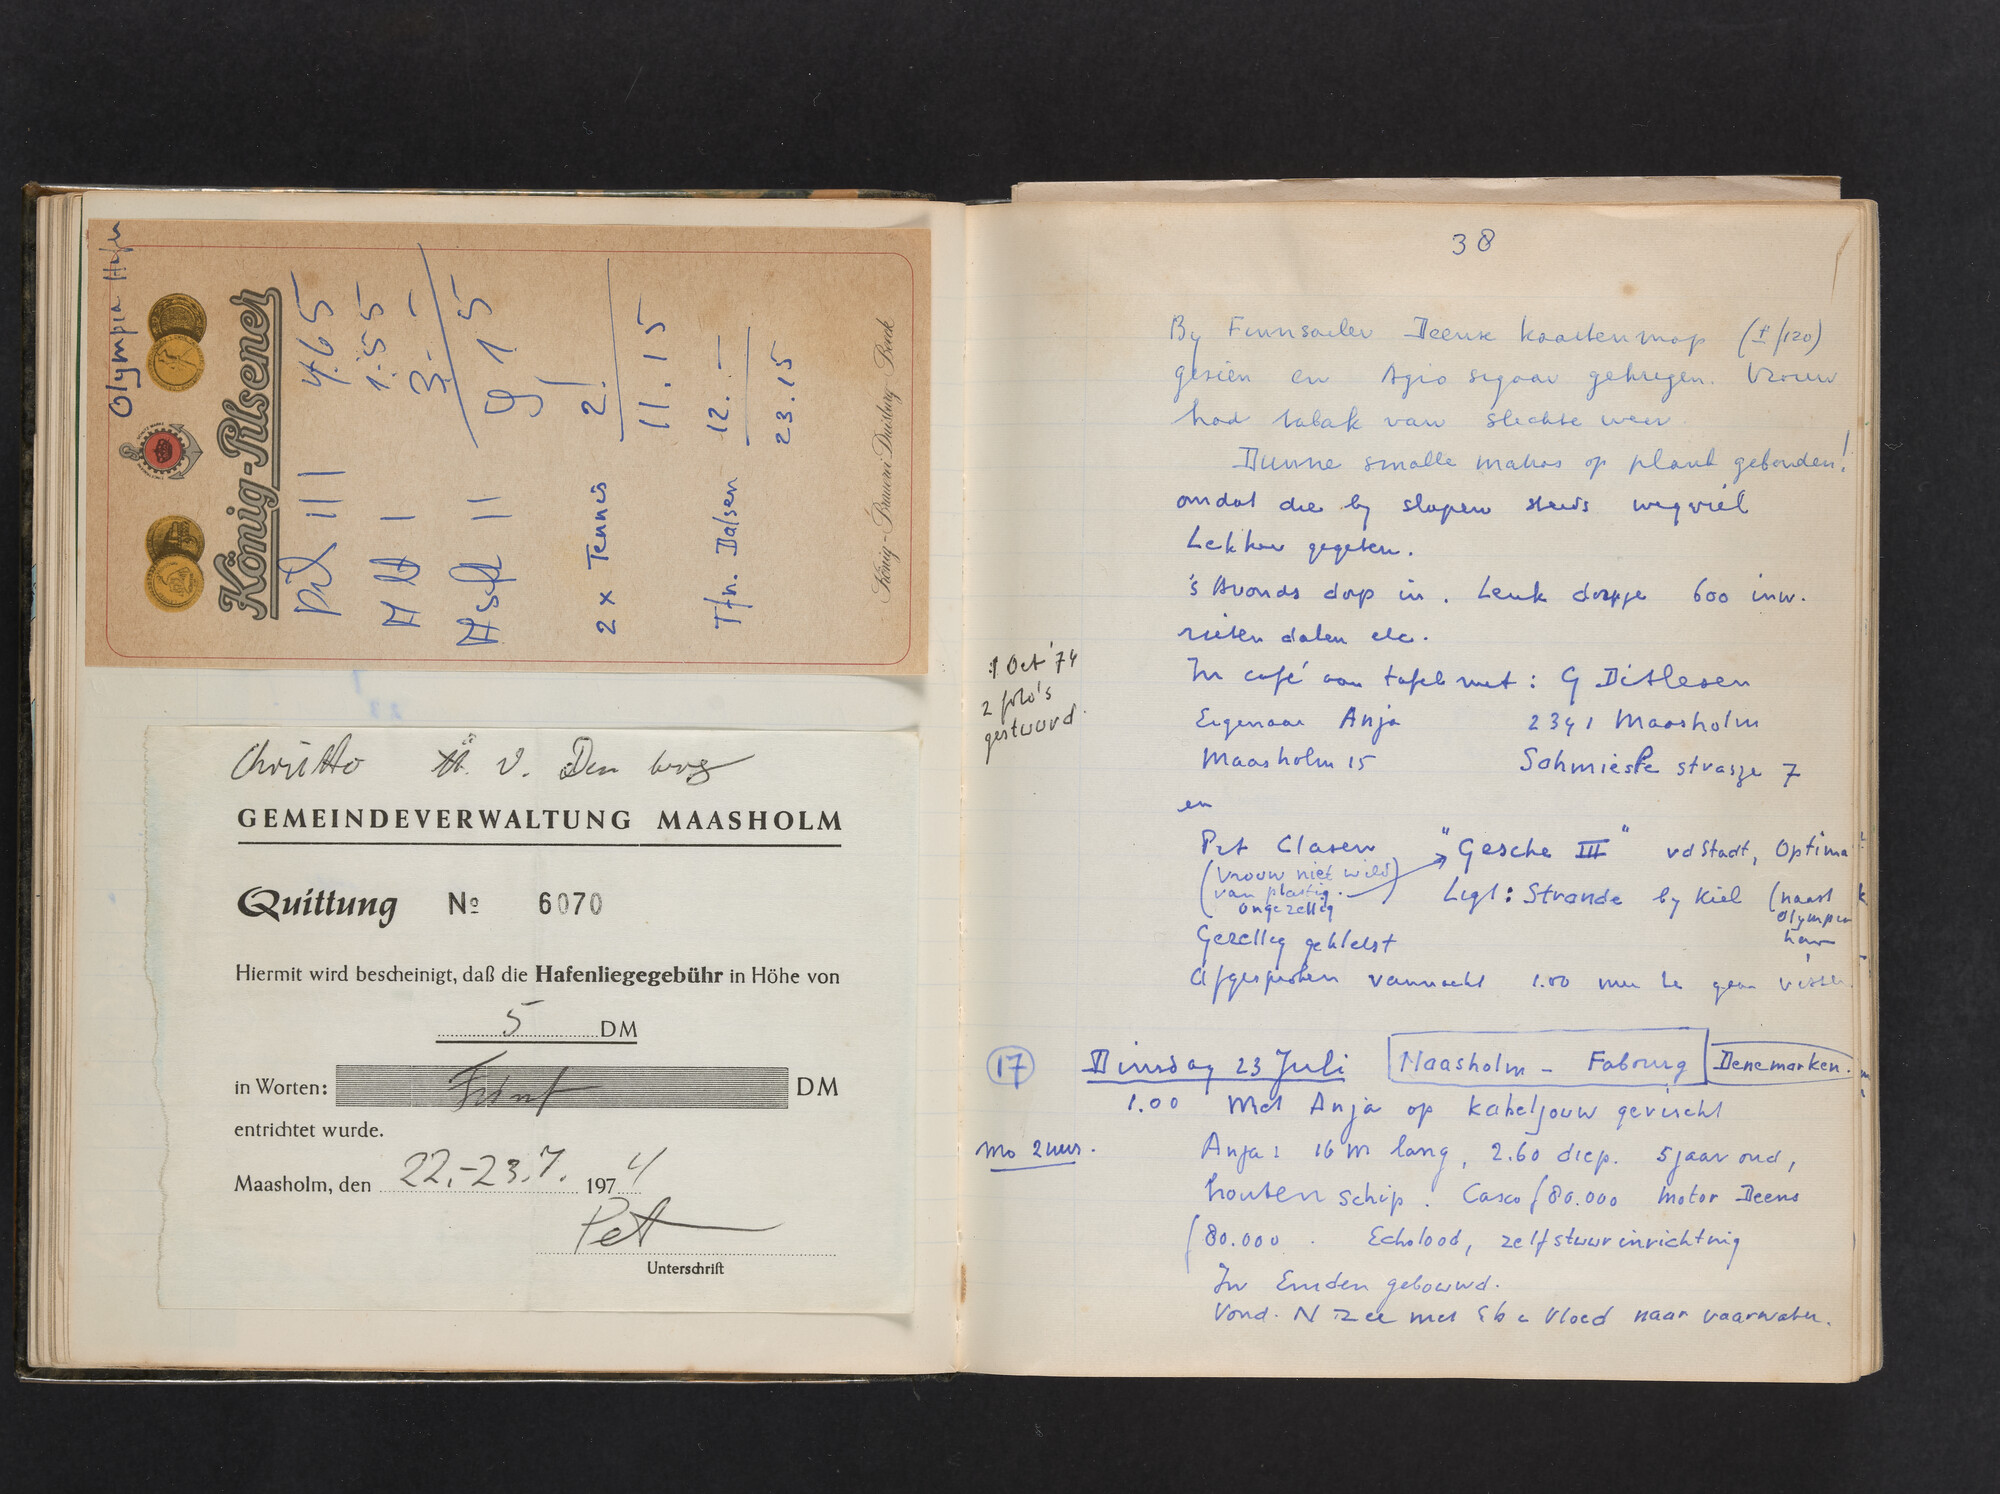 Olympia Hafen
König-Pilsener
Pils III 4.65
Alt I 1.55
II 3.-
9.15
2 x Tennis 2.
11.15
Tfn. Dalsen 12.-
23.15
König-Brauerei Duisburg-Beeck
v. Den berg
GEMEINDEVERWALTUNG MAASHOLM
Quittung Nº 6070
Hiermit wird bescheinigt, daß die Hafenliegegebühr in Höhe von
5 DM
in Worten: Fünf DM
entrichtet wurde.
Maasholm, den 22.-23.7. 1974
Pet
Unterschrift
38
By Finnsailer Deense kaartenmap (± ƒ120)
gezien en Agio sigaar gekregen. Vrouw
had tabak van slechte weer
Dunne smalle matras op plank gebonden!
omdat die by slapen steeds wegviel
Lekker gegeten.
's Avonds dorp in. Leuk dorpje 600 inw.
rieten daken etc.
1 Oct '74
2 foto's
gestuurd.
In café aan tafel met: G Ditlesen
Eigenaar Anja 2341 Maasholm
Maasholm 15 Schmiestrasze 7
en
Pet Clasen "Gesche III" vd Stadt, Optima
(Vrouw niet wild
van plastig.
ongezellig)
Ligt: Strande by Kiel (naast
Olympia
hav
Gezellig gekletst
Afgesproken vannacht 1.00 mee te gaan vissen.
17 Dinsdag 23 Juli Maasholm - Faborg Denemarken.
1.00 Met Anja op kabeljouw gevischt
mo 2 uur.
Anja: 16 m lang, 2.60 diep. 5 jaar oud,
houten schip. Casco ƒ80.000 Motor Deens
ƒ80.000. Echolood, zelfstuurinrichting
In Emden gebouwd.
Vond. N zee met Eb e Vloed naar vaarwater.